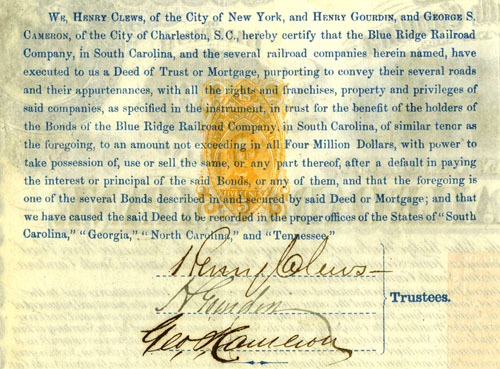 WE, HENRY CLEWS, of the City of New York, and HENRY GOURDIN, and GEORGE S.
CAMERON, of the City of Charleston, S. C., hereby certify that the Blue Ridge Railroad
Company, in South Carolina, and the several railroad companies herein named, have
executed to us a Deed of Trust or Mortgage, purporting to convey their several roads
and their appurtenances, with all the rights and franchises, property and privileges of
said companies, as specified in the instrument, in trust for the benefit of the holders
of the Bonds of the Blue Ridge Railroad Company, in South Carolina, of similar tenor as
the foregoing, to an amount not exceeding in all Four Million Dollars, with power to
take possession of, use or sell the same, or any part thereof, after a default in paying
the interest or principal of the said Bonds, or any of them, and that the foregoing is
one of the several Bonds described in and secured by said Deed or Mortgage; and that
we have caused the said Deed to be recorded in the proper offices of the States of "South
Carolina," "Georgia," "North Carolina," and "Tennessee."
Henry Clews
H Gourdin
Geo. S. Cameron
Trustees.